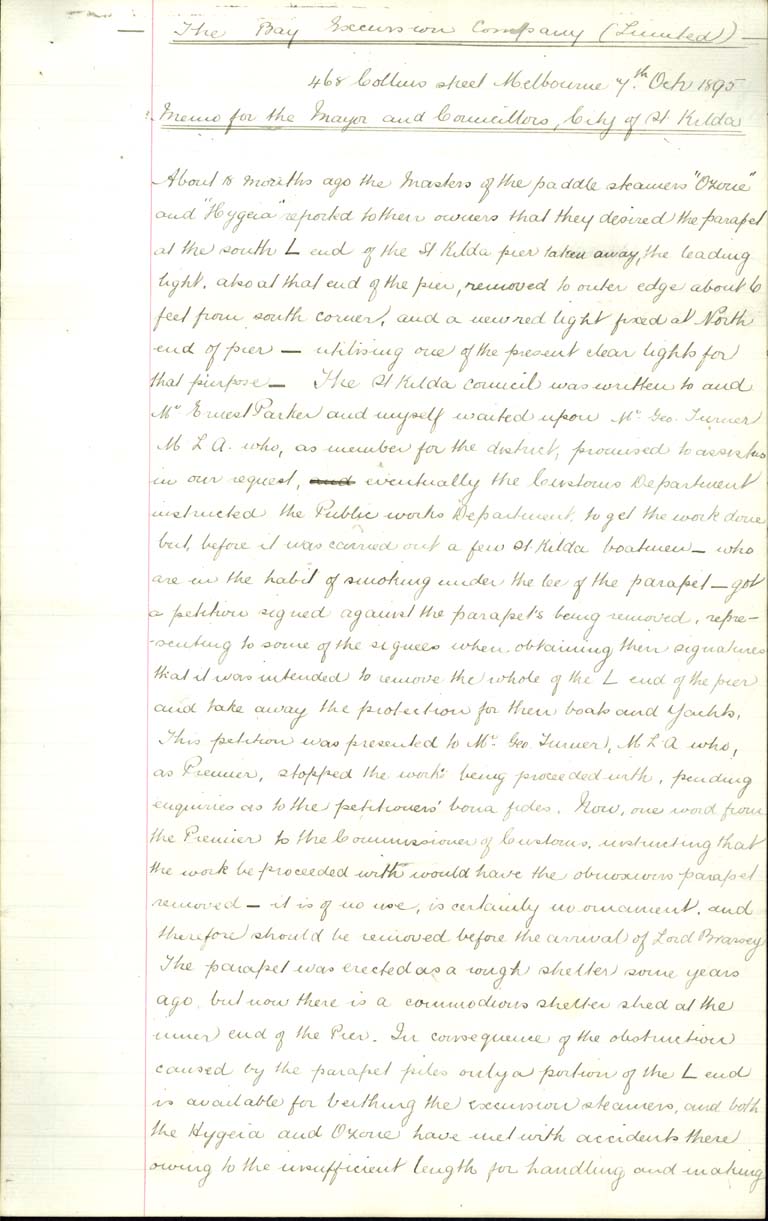 The Bay Excursion Company (Limited)
468 Collins street Melbourne 7th Octr 1895
Memo for the Mayor and Councillors, City of St Kilda
About 18 months ago the Masters of the paddle steamers "Ozone"
and "Hygeia" reported to their owners that they desired the parapet
at the south L end of the St Kilda pier taken away, the leading
light, also at that end of the pier, removed to outer edge about 6
feet from south corner, and a new red light fixed at North
end of pier — utilising one of the present clear lights for
that purpose — The St Kilda Council was written to and
Mr Ernest Parker and myself waited upon Mr Geo. Turner
M L A. who, as member for the district, promised to assist us
in our request, and eventually the Customs Department
instructed the Public works Department, to get the work done
but, before it was carried out a few St Kilda boatmen — who
are in the habit of smoking under the lee of the parapet — got
a petition signed against the parapet's being removed, repre-
-senting to some of the signees when obtaining their signatures
that it was intended to remove the whole of the L end of the pier
and take away the protection for their boats and Yachts.
This petition was presented to Mr Geo Turner, M L A who,
as Premier, stopped the work being proceeded with, pending
enquiries as to the petitioners' bona fides. Now, one word from
the Premier to the Commissioner of Customs, instructing that
the work be proceeded with would have the obnoxious parapet
removed — it is of no use, is certainly no ornament, and
therefore should be removed before the arrival of Lord Brassey
The parapet was erected as a rough shelter some years
ago, but now there is a commodious shelter shed at the
inner end of the Pier. In consequence of the obstruction
caused by the parapet piles only a portion of the L end
is available for berthing the excursion steamers, and both
the Hygeia and Ozone have met with accidents there
owing to the insufficient length for handling and making